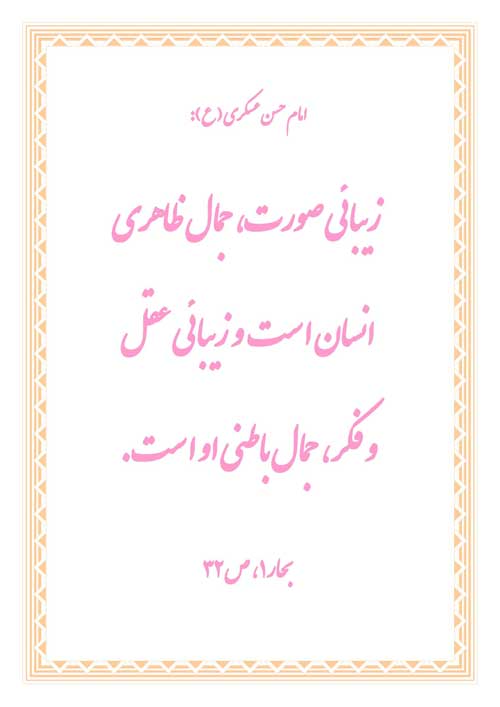 امام حسن عسکری (ع):
زیبائی صورت، جمال ظاهری
انسان است و زیبائی عقل
و فکر، جمال باطنی او است.
بحار ۱، ص ۳۲